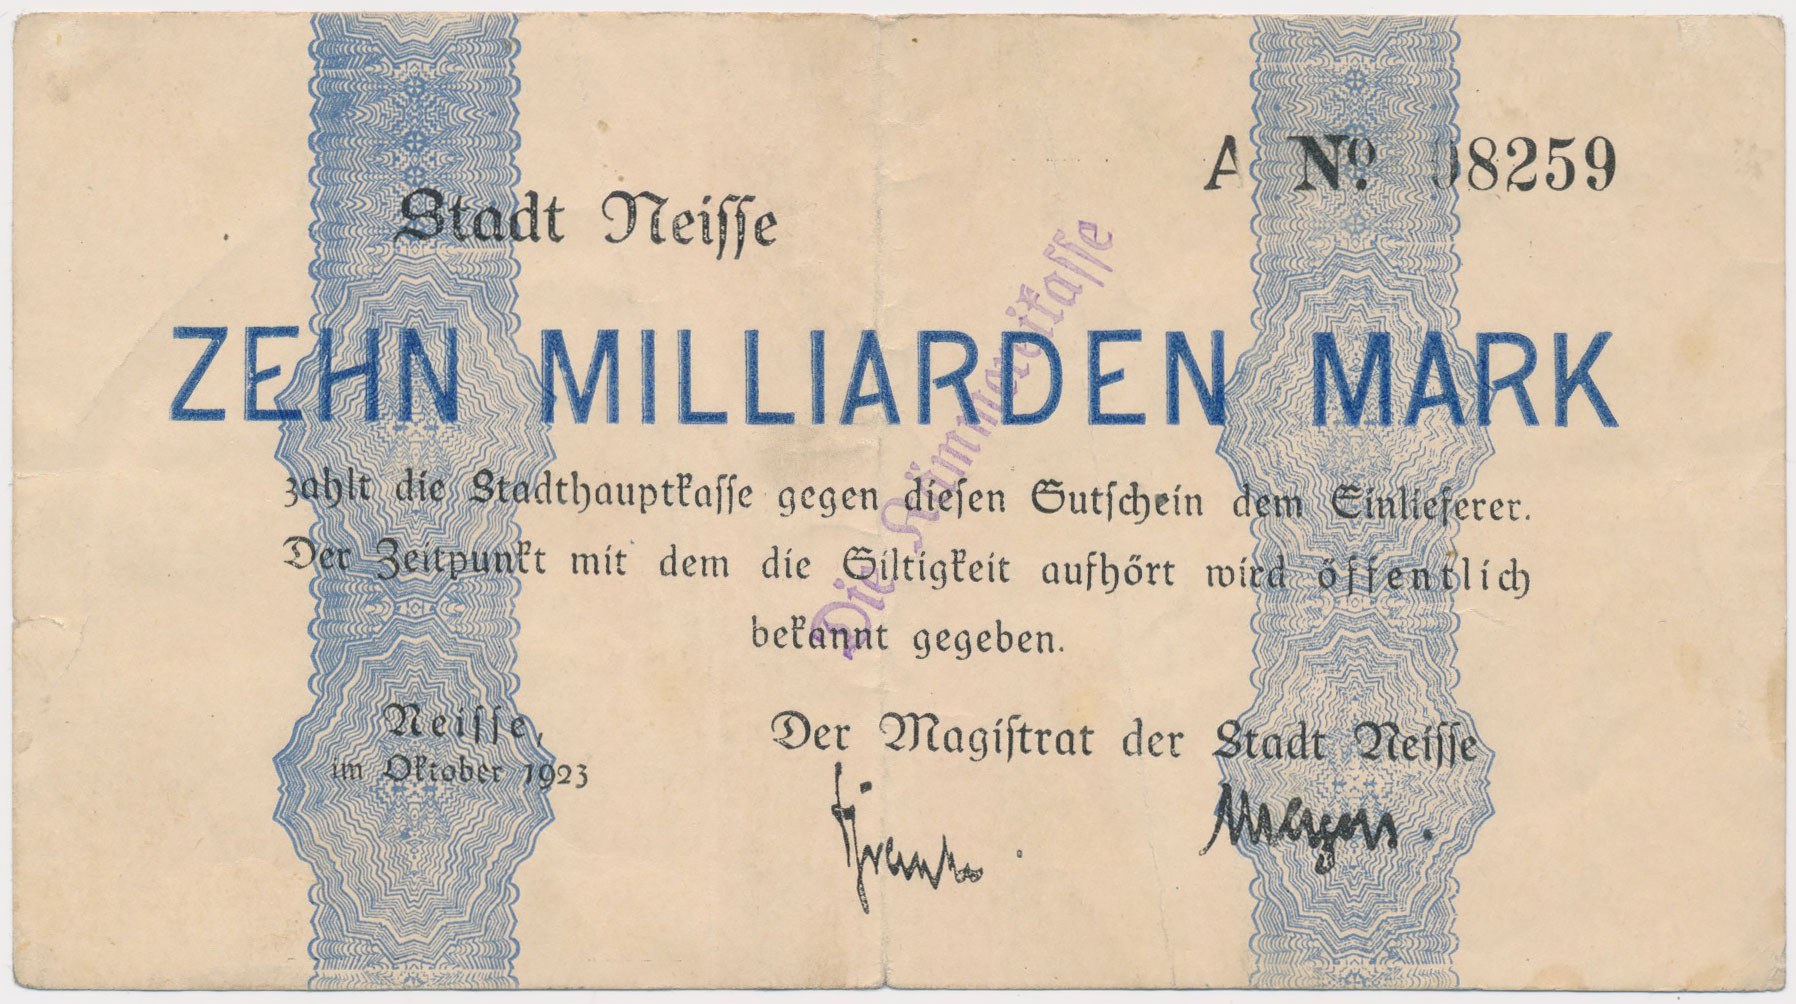 A No. 08259
Stadt Neisse
ZEHN MILLIARDEN MARK
zahlt die Stadthauptkasse gegen diesen Gutschein dem Einlieferer.
Der Zeitpunkt mit dem die Giltigkeit aufhört wird öffentlich
bekannt gegeben.
Die Kämmereikasse
Neisse,
im Oktober 1923
Der Magistrat der Stadt Neisse